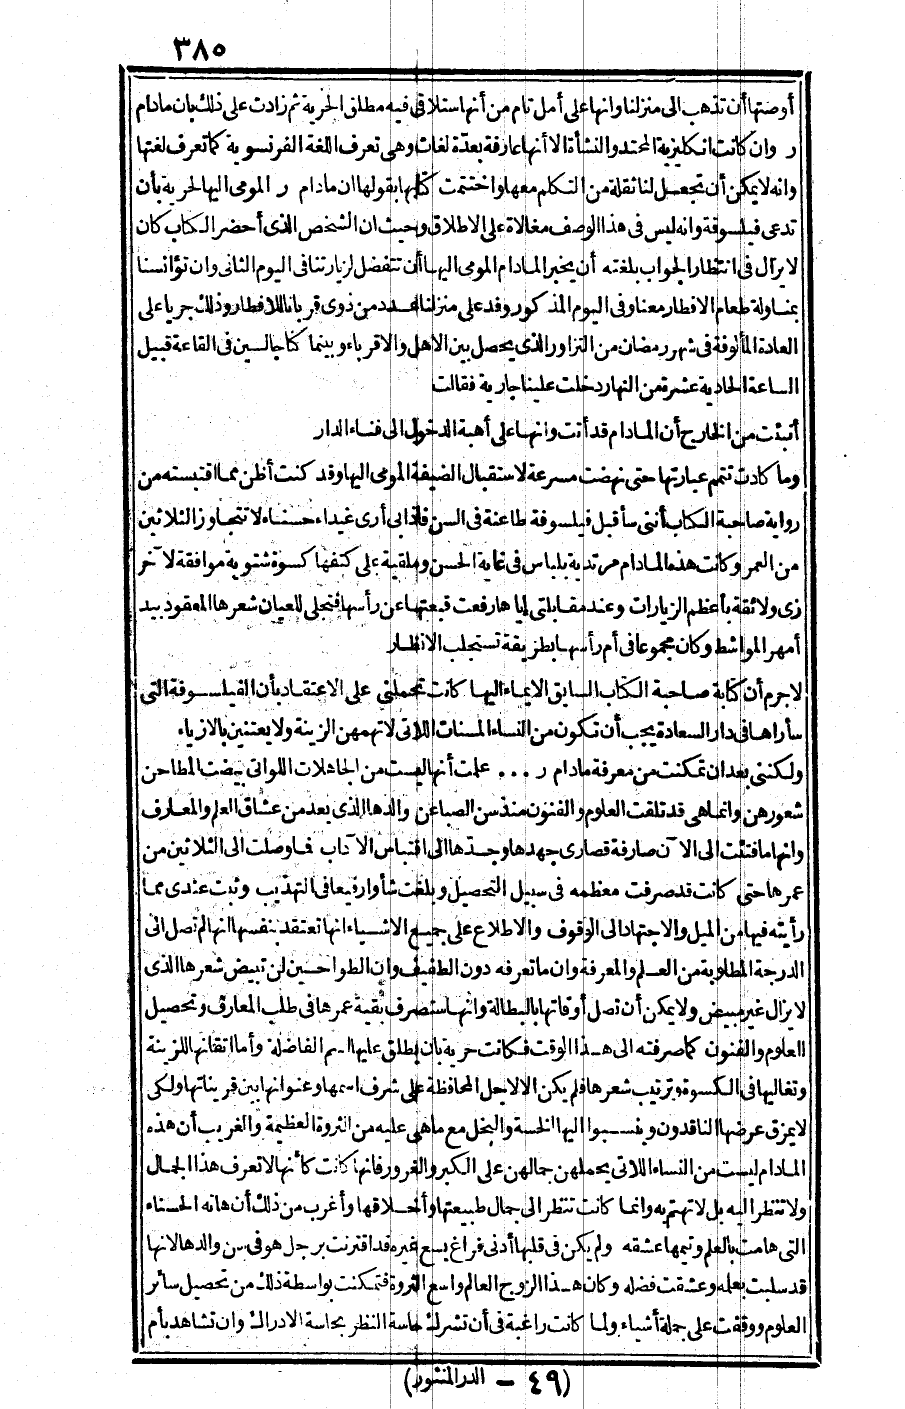 ٣٨٥
أوصتها أن تذهب الى منزلنا وانها على أمل تام من أنها ستلاقى فيه مطلق الحرية ثم زادت على ذلك بان مادام
ر وان كانت انكليزية المحتد والنشأة الا أنها عارفة بعدة لغات وهى تعرف اللغة الفرنسوية كما تعرف لغتها
وانه لا يمكن أن تجعل لنا ثقلة من التكلم معها واختتمت كتابها بقولها ان مادام ر المومى اليها لحرية بأن
تدعى فيلسوفة وانه ليس فى هذا الوصف مغالاة على الاطلاق وحيث ان الشخص الذى أحضر الكتاب كان
لا يزال فى انتظار الجواب بلغته أن يخبر المادام المومى اليها أن تتفضل لزيارتنا فى اليوم الثانى وان تؤانسنا
بمناولة طعام الافطار معنا وفى اليوم المذكور وفد على منزلنا عدد من ذوى قربانا للافطار وذلك جريا على
العادة المألوفة فى شهر رمضان من التزاور الذى يحصل بين الاهل والاقرباء وبينما كنا جالسين فى القاعة قبيل
الساعة الحادية عشرة من النهار دخلت علينا جارية فقالت
أنبئت من الخارج أن المادام قد أتت وانها على أهبة الدخول الى فناء الدار
وما كادت تتمم عبارتها حتى نهضت مسرعة لاستقبال الضيفة المومى اليها وقد كنت أظن مما اقتبسته من
رواية صاحبة الكتاب أننى سأقبل فيلسوفة طاعنة فى السن فاذا بى أرى غيداء حسناء لا تتجاوز الثلاثين
من العمر وكانت هذه المادام مرتدية بلباس فى غاية الحسن وملقية على كتفها كسوة شتوية موافقة لآخر
زى ولائقة بأعظم الزيارات وعند مقابلتى اياها رفعت قبعتها عن رأسها فتجلى للعيان شعرها المعقود بيد
أمهر المواشط وكان مجموعا فى أم رأسها بطريقة تستجلب الانظار
لا جرم أن كتابة صاحبة الكتاب السابق الايماء اليها كانت تحملنى على الاعتقاد بأن الفيلسوفة التى
سأراها فى دار السعادة يجب أن تكون من النساء المسنات اللاتى لا تهمهن الزينة ولا يعتنين بالازياء
ولكننى بعد ان تمكنت من معرفة مادام ر ... علمت أنها ليست من الجاهلات اللواتى بيضت المطاحن
شعورهن وانما هى قد تلقت العلوم والفنون منذ سن الصبا عن والدها الذى يعد من عشاق العلم والمعارف
وانها ما فتئت الى الآن صارفة قصارى جهدها وجدها الى اقتباس الآداب فما وصلت الى الثلاثين من
عمرها حتى كانت قد صرفت معظمه فى سبيل التحصيل وبلغت شأوا رفيعا فى التهذيب وثبت عندى مما
رأيته فيها من الميل والاجتهاد الى الوقوف والاطلاع على جميع الاشياء انها تعتقد بنفسها انها لم تصل الى
الدرجة المطلوبة من العلم والمعرفة وان ما تعرفه دون الطفيف وان الطواحين لن تبيض شعرها الذى
لا يزال غير مبيض ولا يمكن أن تصل أوقاتها بالبطالة وانها ستصرف بقية عمرها فى طلب المعارف وتحصيل
العلوم والفنون كما صرفته الى هذا الوقت فكانت حرية بان يطلق عليها اسم الفاضلة وأما اتقانها للزينة
وتغاليها فى الكسوة وترتيب شعرها فلم يكن الا لاجل المحافظة على شرف اسمها وعنوانها بين قريناتها ولكى
لا يمزق عرضها الناقدون وينسبوا اليها الخسة والبخل مع ما هى عليه من الثروة العظيمة والغريب أن هذه
المادام ليست من النساء اللاتى يحملهن جمالهن على الكبر والغرور فانها كانت كأنها لا تعرف هذا الجمال
ولا تنظر اليه بل لا تهتم به وانما كانت تنظر الى جمال طبيعتها وأخلاقها وأغرب من ذلك أن هاته الحسناء
التى هامت بالعلم وتيمها عشقه ولم يكن فى قلبها أدنى فراغ يسع غيره قد اقترنت برجل هو فى سن والدها لانها
قد سلبت بعلمه وعشقت فضله وكان هذا الزوج العالم واسع الثروة فتمكنت بواسطة ذلك من تحصيل سائر
العلوم ووقفت على جملة أشياء ولما كانت راغبة فى أن تشرك حاسة النظر بحاسة الادراك وان تشاهد بأم
(٤٩ - الدر المنثور)